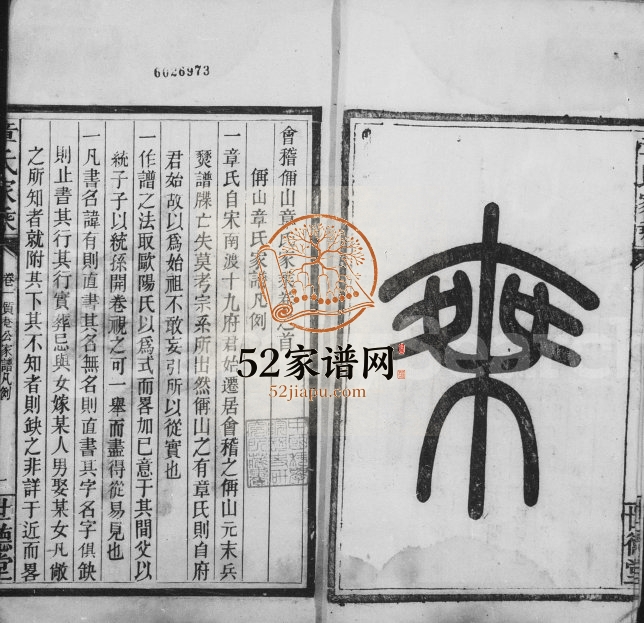 6626973
乘
世德堂
會稽偁山章氏家乘卷之首
偁山章氏家譜凡例
一章氏自宋南渡十九府君始遷居會稽之偁山元末兵
燹譜牒亡失莫考宗系所出然偁山之有章氏則自府
君始故以爲始祖不敢妄引所以從實也
一作譜之法取歐陽氏以爲式而畧加已意于其間父以
統子子以統孫開卷視之可一舉而盡得從易見也
一凡書名諱有則直書其名無名則直書其字名字俱缺
則止書其行其行實葬忌與女嫁某人男娶某女凡敵
之所知者就附其下其不知者則缺之非詳于近而畧
章氏家乘
卷
公家譜凡例
世德堂
52家谱网
52jiapu.com